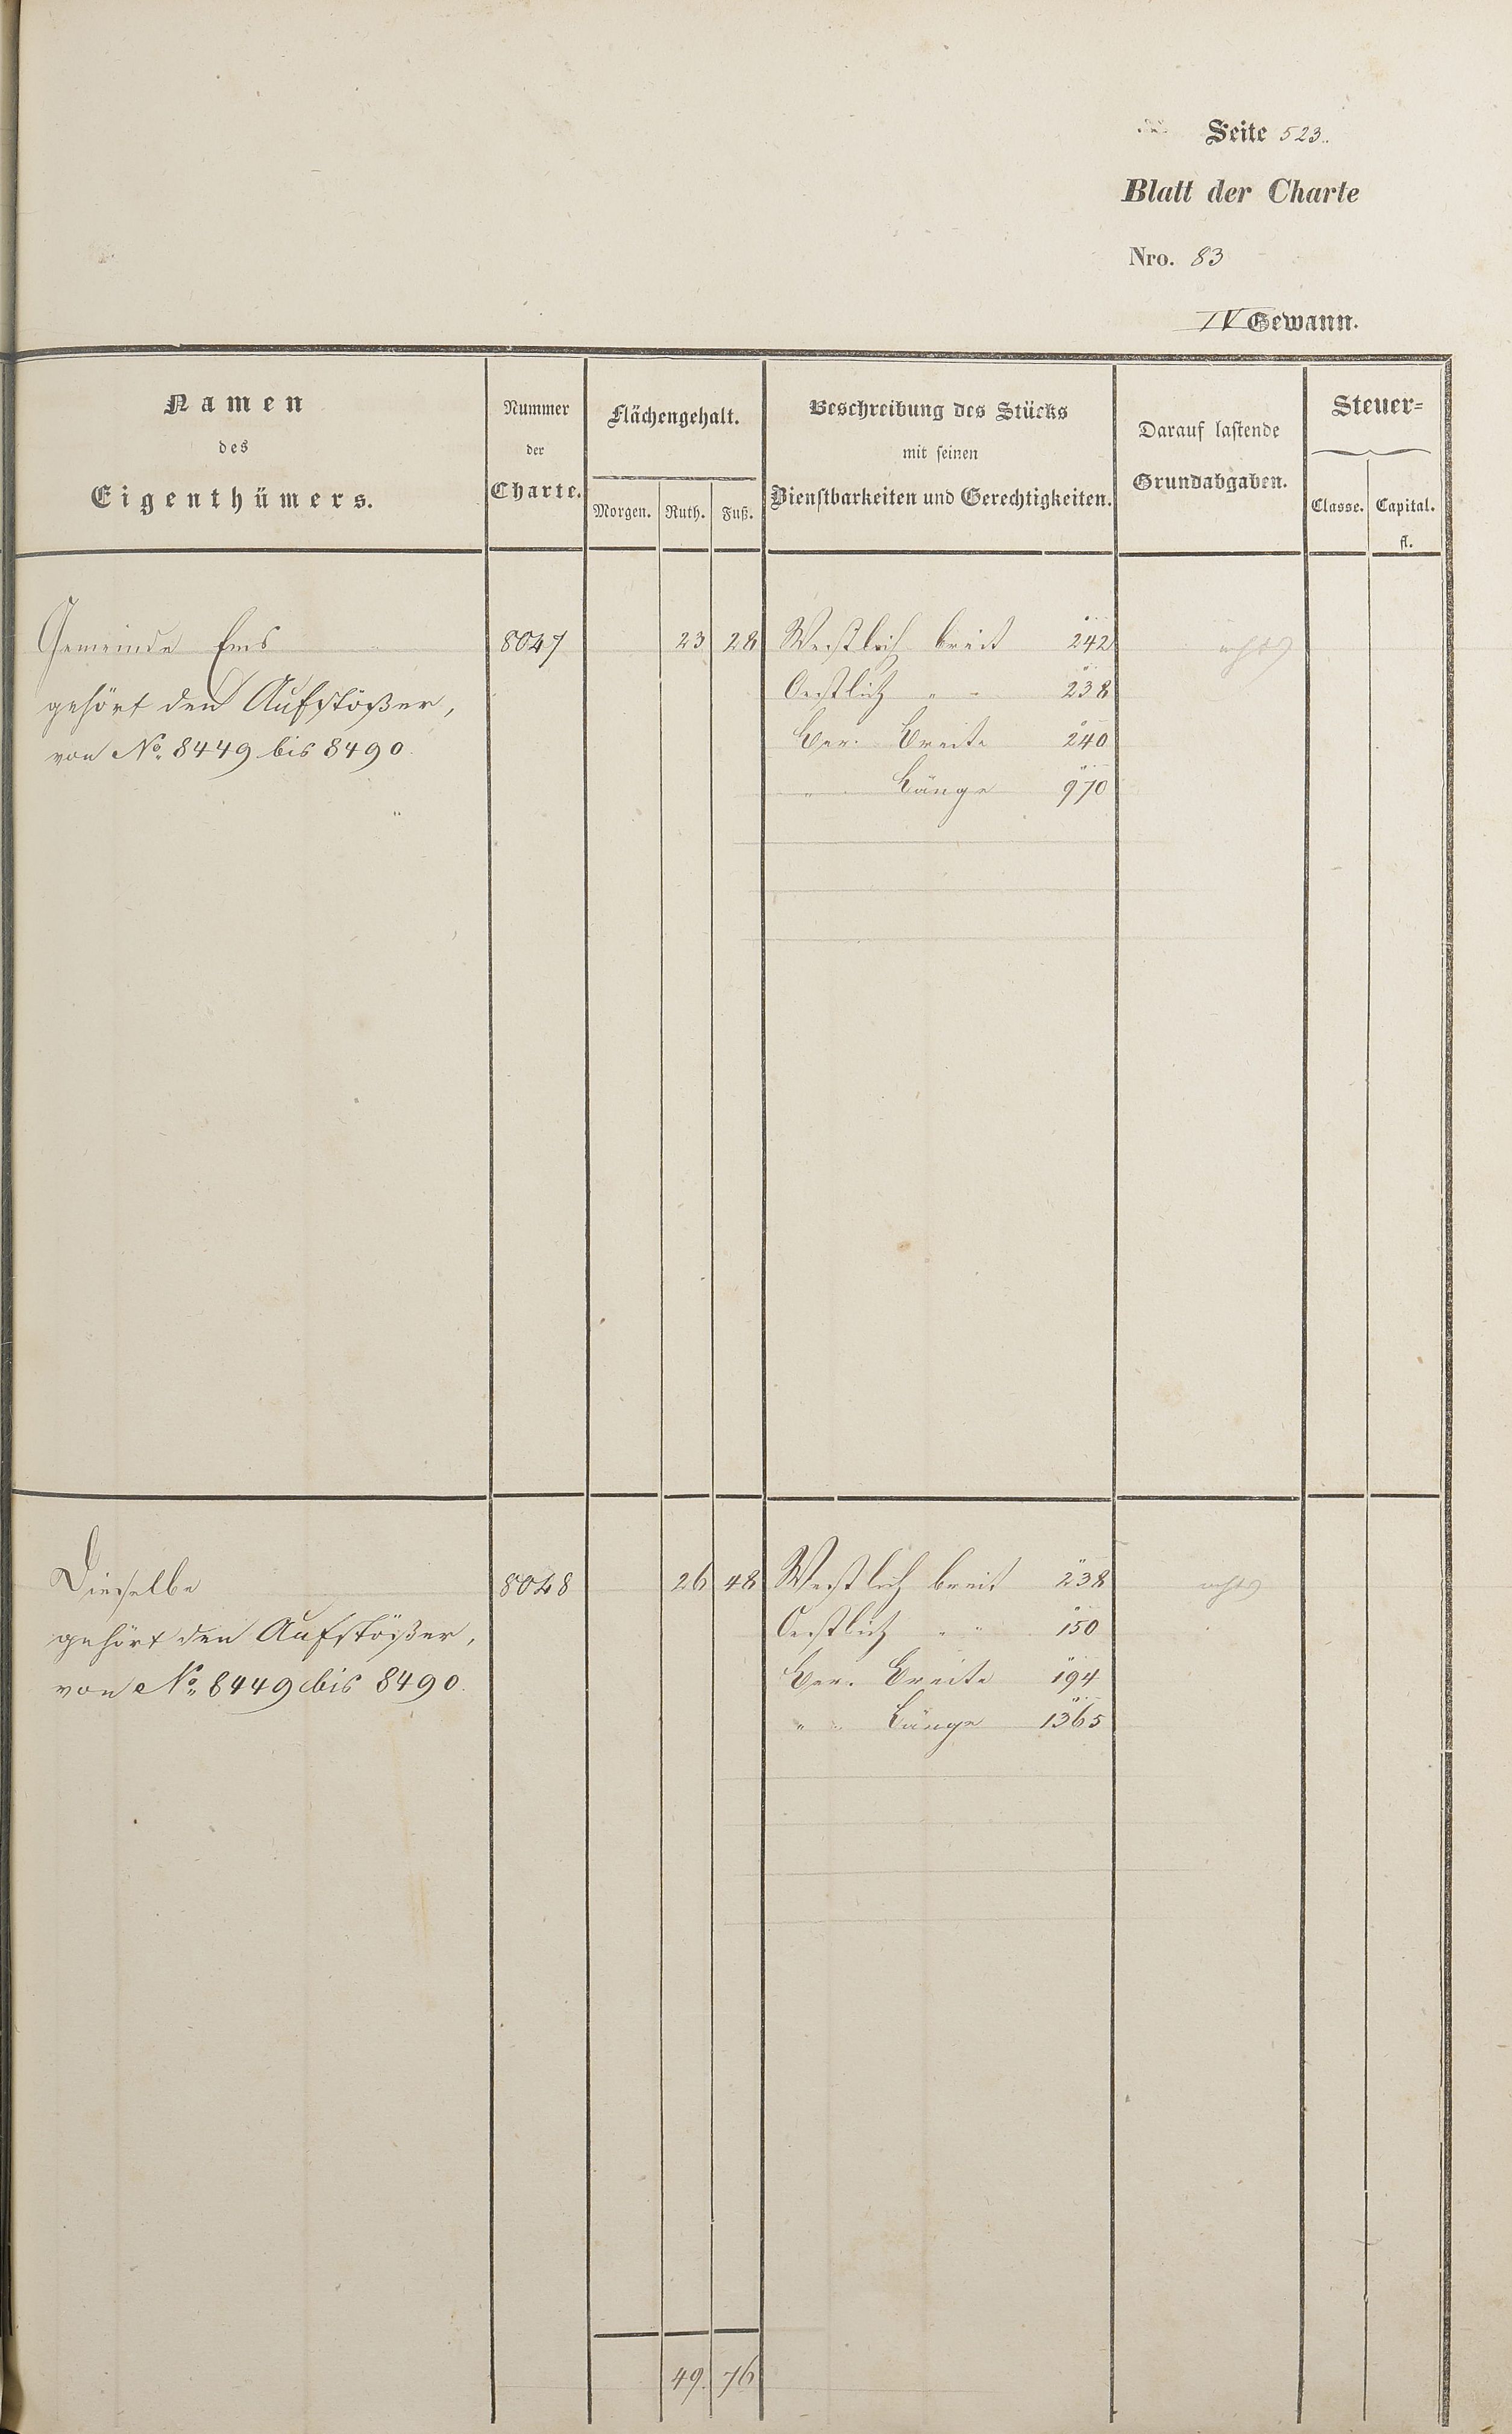 Seite 523.
Blatt der Charte
Nro. 83
IV Gewann.
Namen
des
Eigenthümers.
Nummer
der
Charte.
Flächengehalt.
Morgen. Ruth. Fuß.
Beschreibung des Stücks
mit seinen
Dienstbarkeiten und Gerechtigkeiten.
Darauf lastende
Grundabgaben.
Steuer=
Classe. Capital.
fl.
Gemeinde Ems 8047 23 28 Westlich breit 242
gehört den Aufstößer, Oestlich " " 238
von No. 8449 bis 8490. Ber. Breite 240
" Länge 970
Dieselbe 8048 26 48 Westlich breit 238
gehört den Aufstößer, Oestlich " " 150
von No. 8449 bis 8490. Ber. Breite 194
" Länge 1365
49. 76